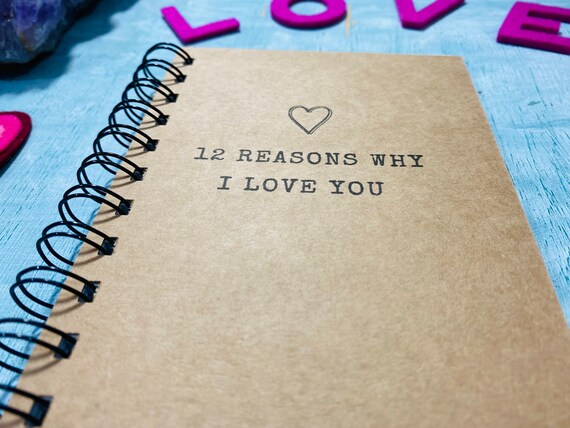 LOVE
12 REASONS WHY
I LOVE YOU